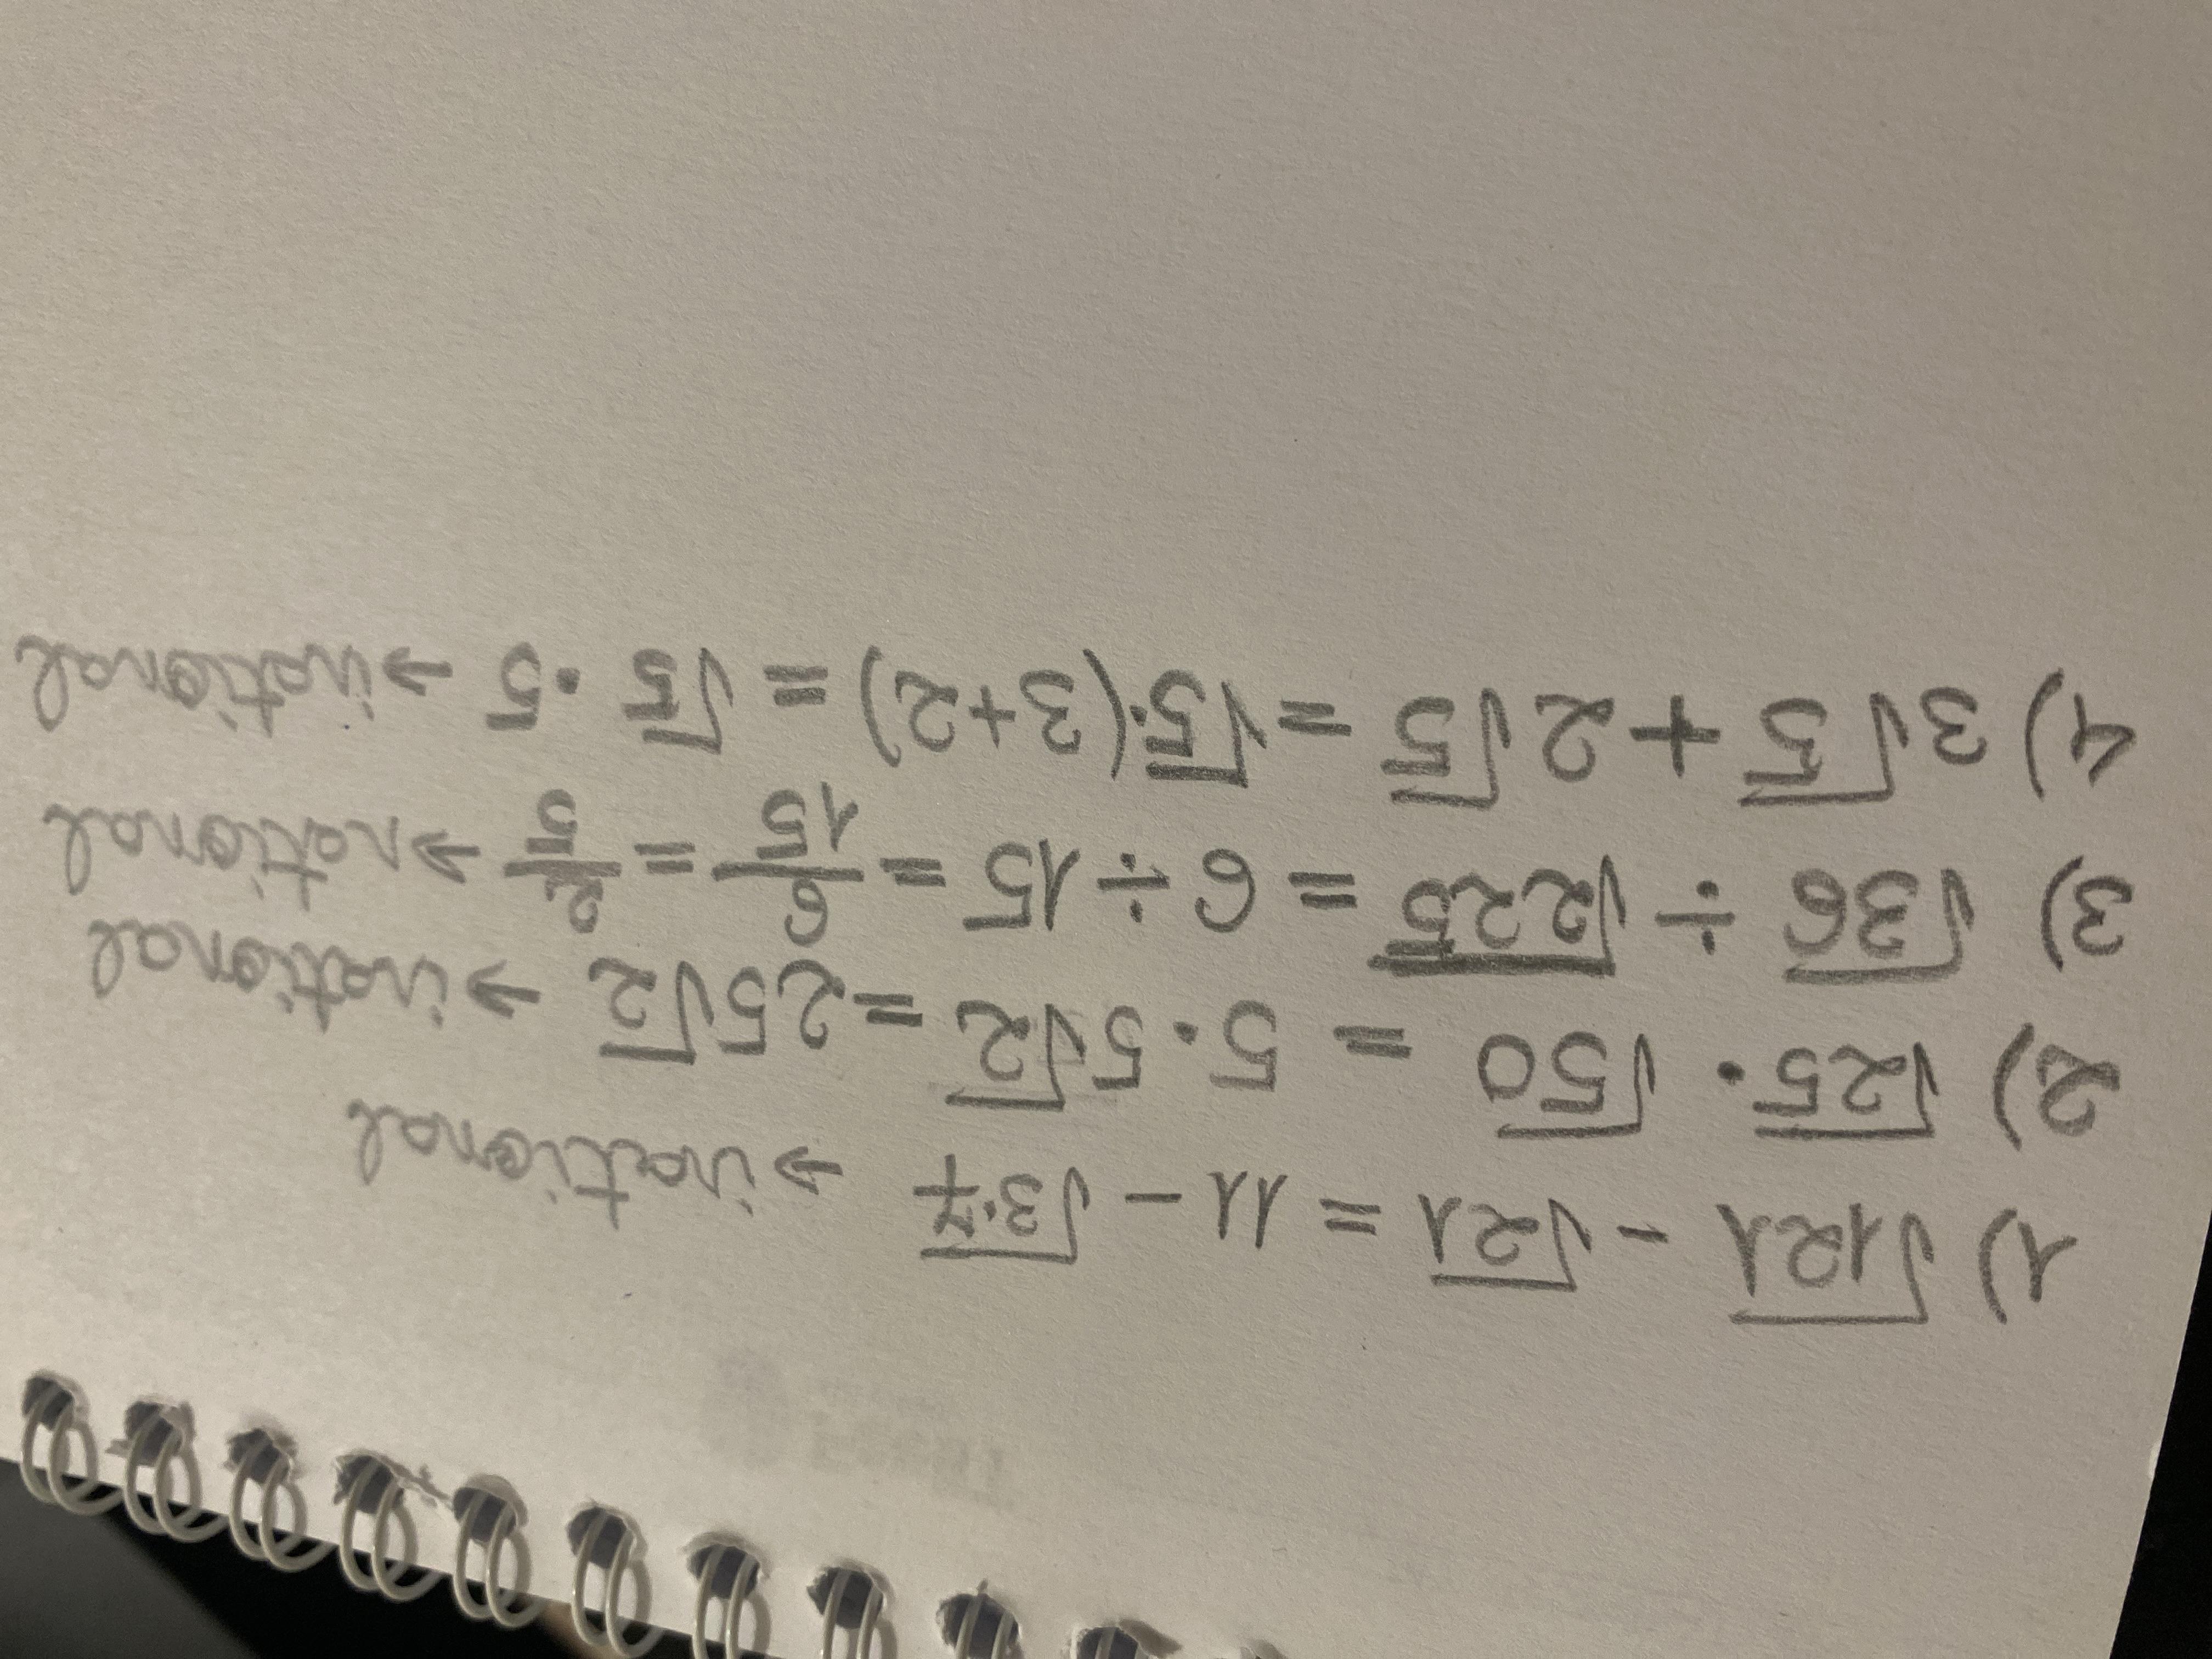 1) √121 - √21 = 11 - √3·7 → irational
2) √25 · √50 = 5 · 5√2 = 25√2 → irational
3) √36 ÷ √225 = 6 ÷ 15 = 6/15 = 2/5 → rational
4) 3√5 + 2√5 = √5·(3+2) = √5 · 5 → irational